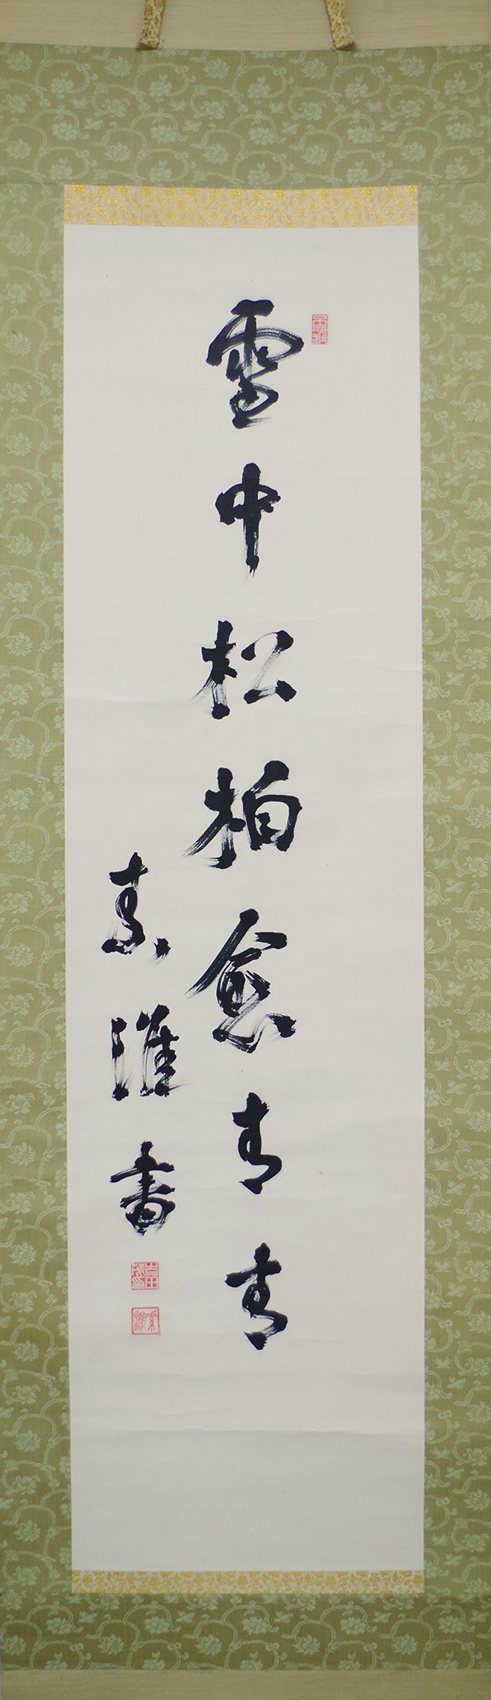 雪中松柏愈青青
素淮書